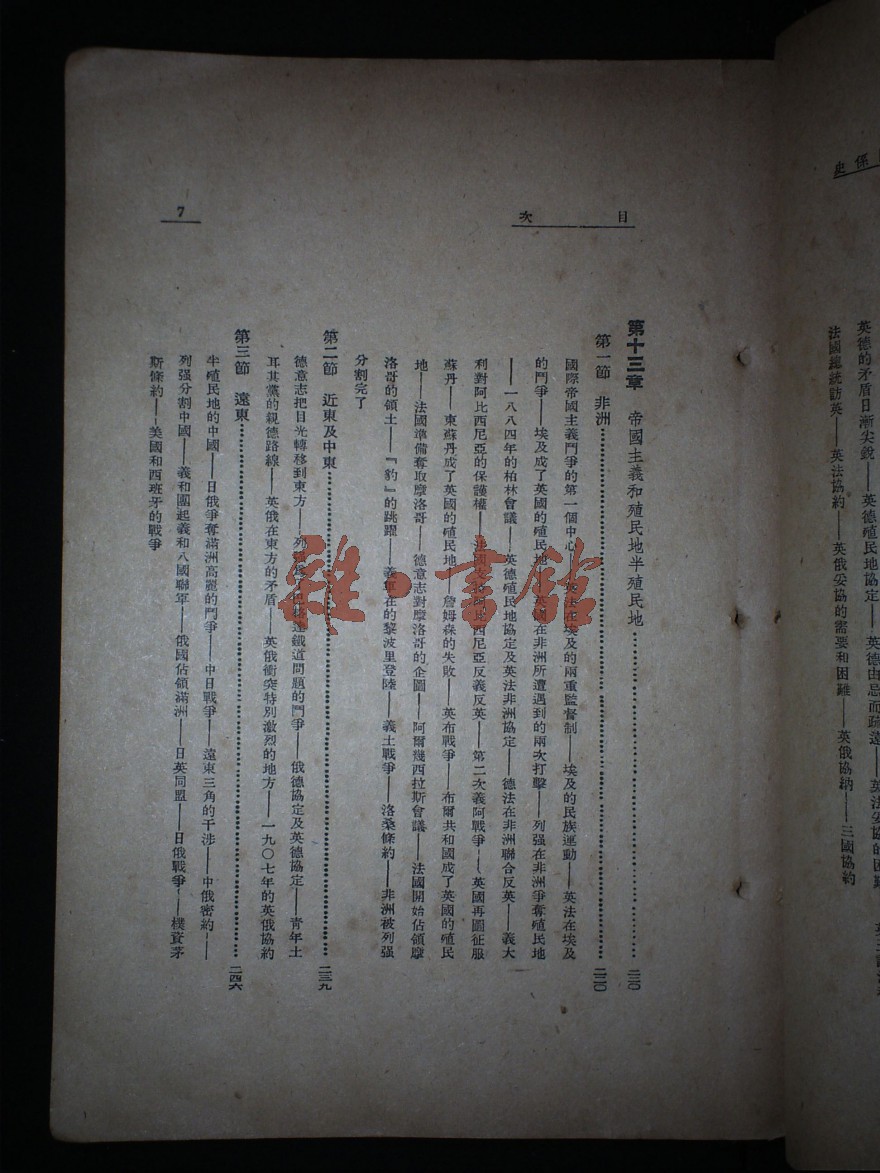 係史
英德的矛盾日漸尖銳——英德殖民地協定——英德由忌而疏遠——英法妥協的困難
法國總統訪英——英法協約——英俄妥協的需要和困難——英俄協納——三國協約
目次
7
第十三章 帝國主義和殖民地半殖民地……二二〇
第一節 非洲……二二〇
國際帝國主義鬥爭的第一個中心——英法在埃及的兩重監督制——埃及的民族運動——英法在埃及
的鬥爭——埃及成了英國的殖民地——英國在非洲所遭遇到的兩次打擊——列强在非洲爭奪殖民地
——一八八四年的柏林會議——英德殖民地協定及英法非洲協定——德法在非洲聯合反英——義大
利對阿比西尼亞的保護權——法國支持阿比西尼亞反義反英——第二次義阿戰爭——英國再圖征服
蘇丹——東蘇丹成了英國的殖民地——詹姆森的失敗——英布戰爭——布爾共和國成了英國的殖民
地——法國準備奪取摩洛哥——德意志對摩洛哥的企圖——阿爾幾西拉斯會議——法國開始佔領摩
洛哥的領土——『豹』的跳躍——義軍在的黎波里登陸——義土戰爭——洛桑條約——非洲被列强
分割完了
第二節 近東及中東……二三九
德意志把目光轉移到東方——列强爲了巴格達鐵道問題的鬥爭——俄德協定及英德協定——青年土
耳其黨的親德路線——英俄在東方的矛盾——英俄衝突特別激烈的地方——一九〇七年的英俄協約
第三節 遠東……二四六
半殖民地的中國——日俄爭奪滿洲高麗的鬥爭——中日戰爭——遠東三角的干涉——中俄密約——
列强分割中國——義和團起義和八國聯軍——俄國佔領滿洲——日英同盟——日俄戰爭——樸資茅
斯條約——美國和西班牙的戰爭
雜·書館